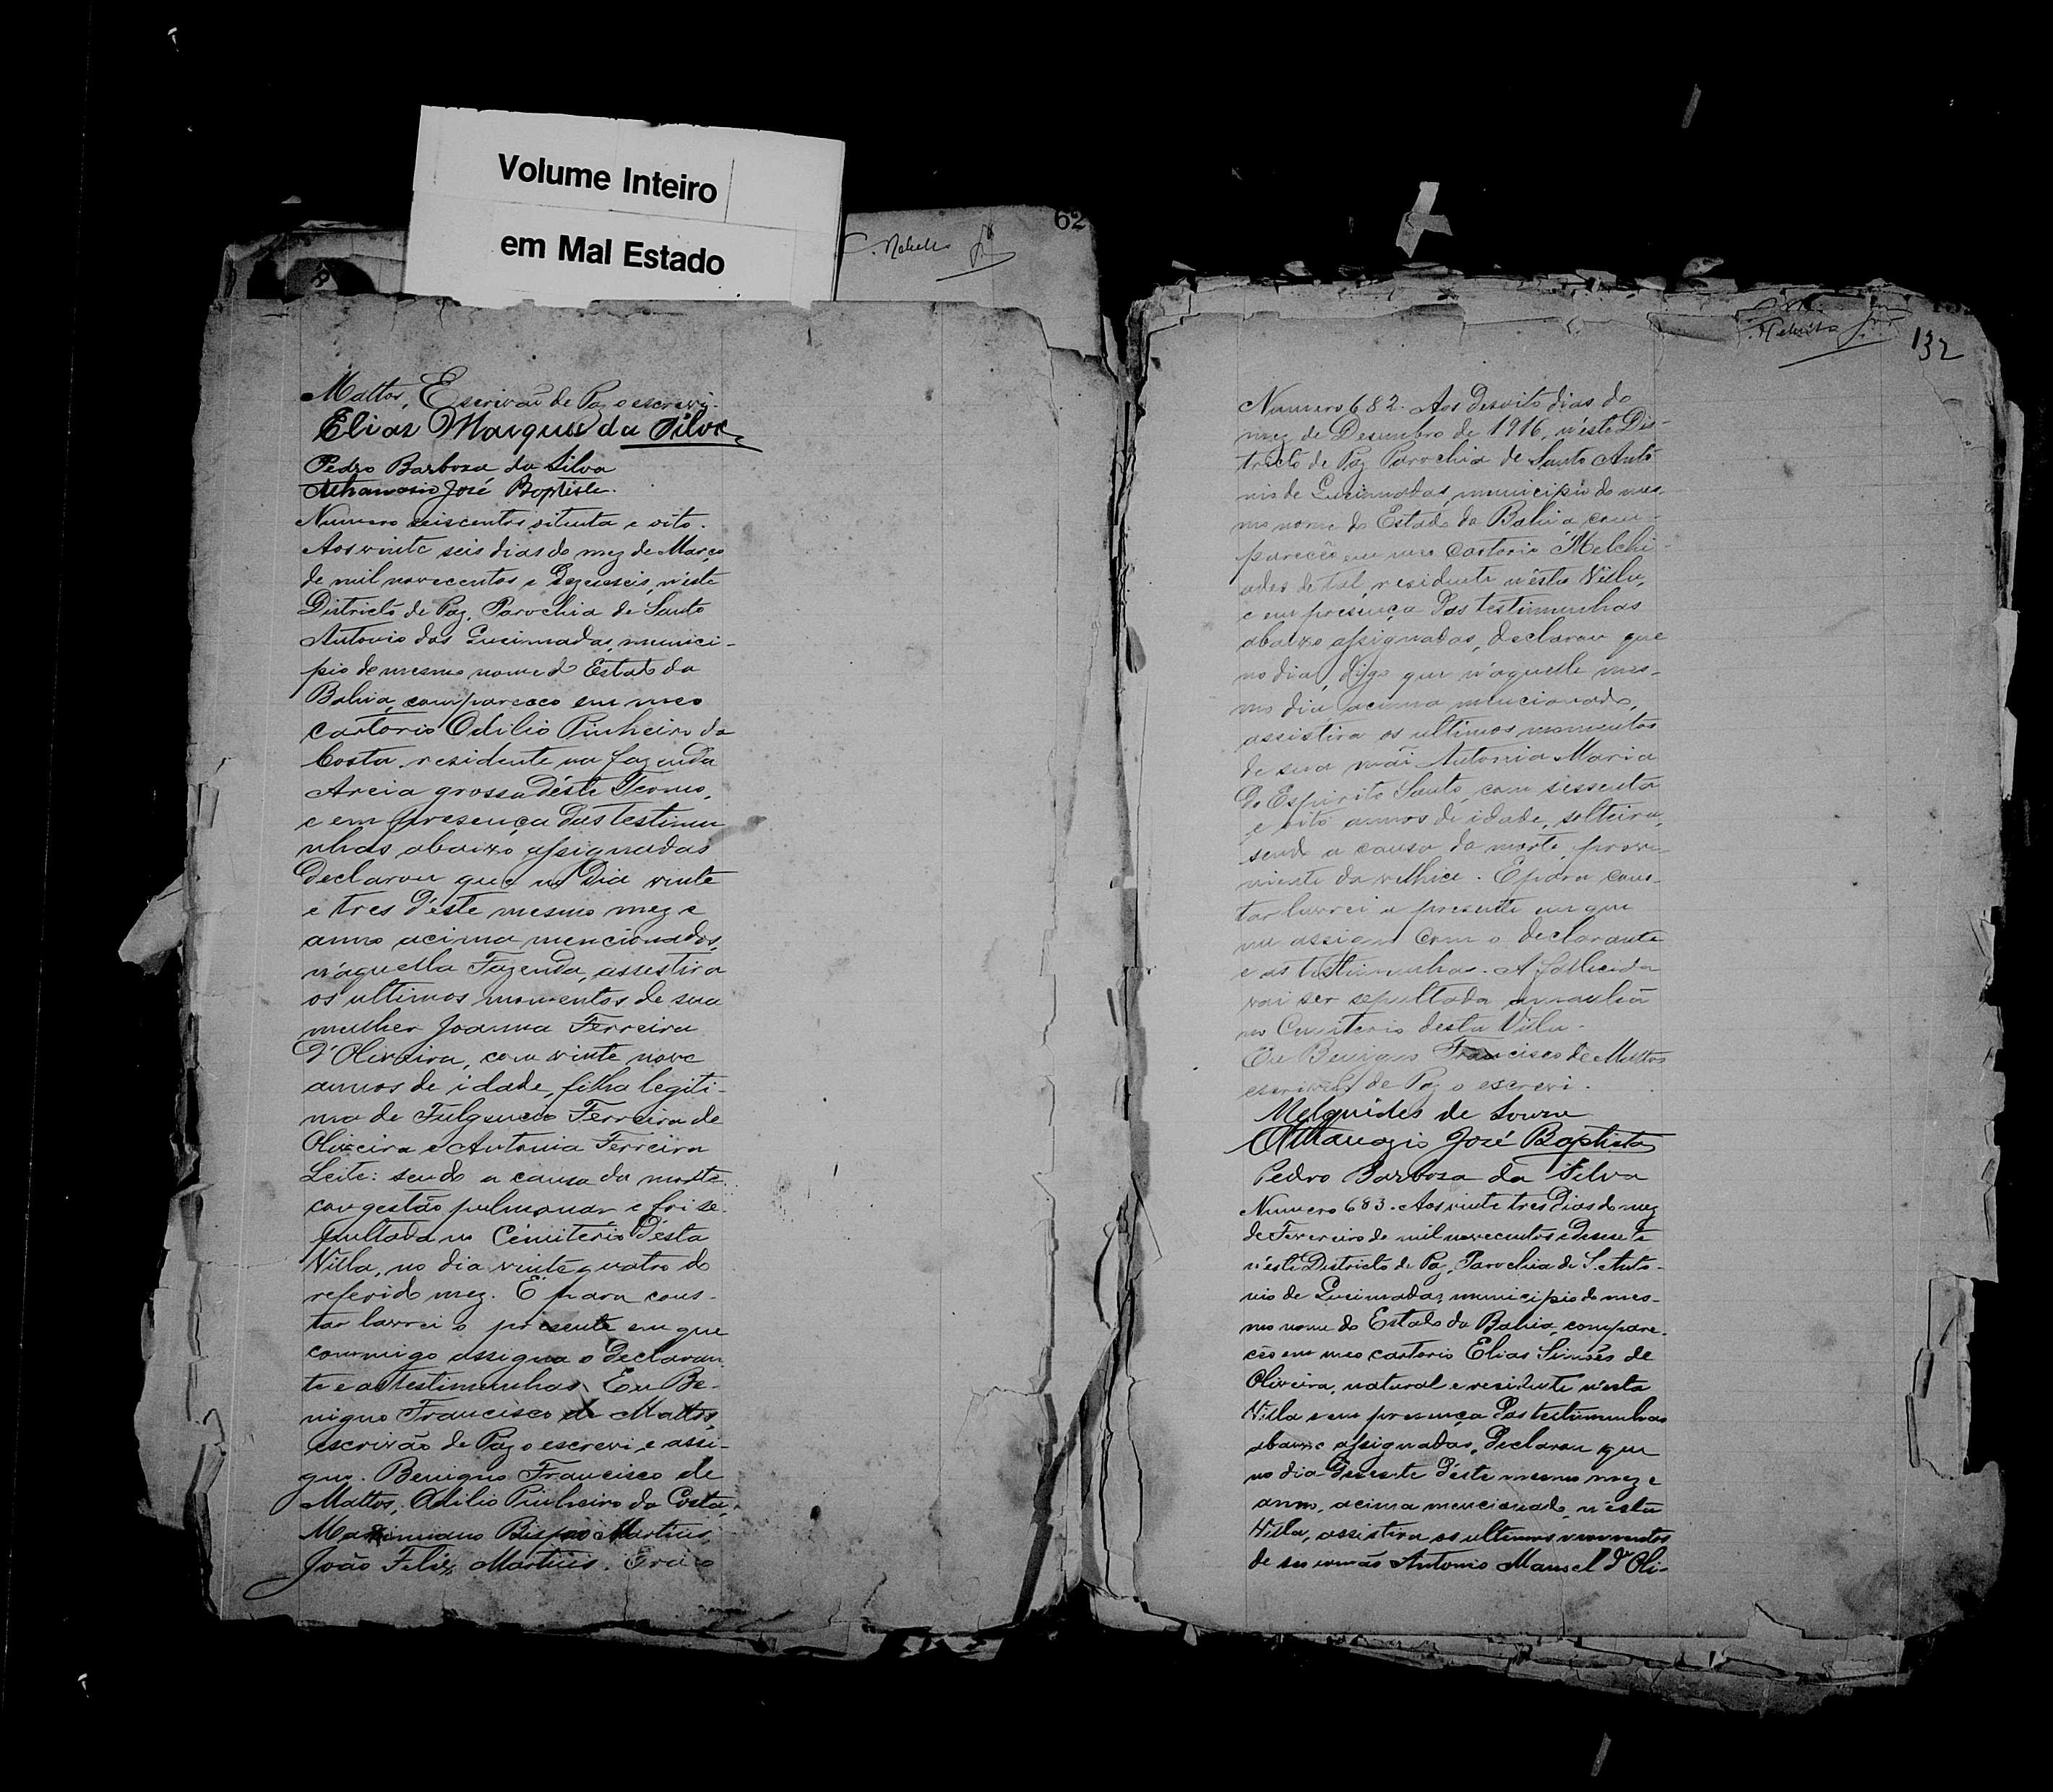 Volume Inteiro
em Mal Estado
62
Mattos, Escrivaõ de Paz o escrevi.
Elias Marques da Silva
Pedro Barboza da Silva
Athanasio José Baptista.
Numero seiscentos oitenta e oito.
Aos vinte seis dias do mez de Março
de mil novecentos e dezeseis, n'este
Districto de Paz, Parochia de Santo
Antonio das Queimadas, munici-
pio do mesmo nome do Estado da
Bahia, compareceo em meo
cartorio Odilio Pinheiro da
Costa, residente na fazenda
Areia grossa d'éste Termo,
e em presença das testimu
nhas abaixo assignadas
declarou que no dia vinte
e tres d'éste mesmo mez e
anno acima mencionados,
n'aquella Fazenda, assestira
os ultimos momentos de sua
mulher Joanna Ferreira
d'Oliveira, com vinte nove
annos de idade, filha legiti-
ma de Fulgencio Ferreira de
Oliveira e Antonia Ferreira
Leite: sendo a causa da morte
congestão pulmonar e foi se-
pultada no Cemiterio d'ésta
Villa, no dia vinte quatro do
referido mez. E para cons-
tar lavrei o presente em que
commigo assigna o declaran
te e as testimunhas. Eu Be-
nigno Francisco de Mattos,
escrivão de Paz o escrevi e assi-
gno. Benigno Francisco de
Mattos, Odilio Pinheiro da Costa,
Maximiano Bispo Martins,
João Felix Martins. Era o
132
Numero 682. Aos desoito dias do
mez de Desembro de 1916, n'este Dis-
tricto de Paz Parochia de Santo Anto
nio de Queimadas, municipio do mes-
mo nome do Estado da Bahia, com-
pareceo em meo Cartorio Melchi-
ades de tal, residente n'ésta Villa,
e em presença das testimunhas
abaixo assignadas, declarou que
no dia, digo que n'aquelle mes-
mo dia acima mencionado,
assistira os ultimos momentos
de sua mãi Antonia Maria
do Espirito Santo, com sessenta
e oito annos de idade, solteira,
sendo a causa da morte, prove-
niente da velhice. E para cons-
tar lavrei a presente em que
me assigno com o declarante
e as testimunhas. A fallecida
vai ser sepultada amanhã
no Cemiterio desta Villa.
Eu Benigno Francisco de Mattos
escrivaõ de Paz o escrevi.
Melquides de Souza
Athanazio José Baptista
Pedro Barboza da Silva
Numero 683. Aos vinte tres dias do mez
de Fevereiro de mil novecentos e desesete
n'éste Districto de Paz, Parochia de S. Anto-
nio de Queimadas, municipio do mes-
mo nome do Estado da Bahia, compare-
ceo em meo cartorio Elias Simões de
Oliveira, natural e residente n'esta
Villa e em presença das testimunhas
abaixo assignadas, declarou que
no dia desesete d'éste mesmo mez e
anno, acima mencionado, n'ésta
Villa, assistira os ultimos momentos
de seo irmão Antonio Manoel d'Oli-